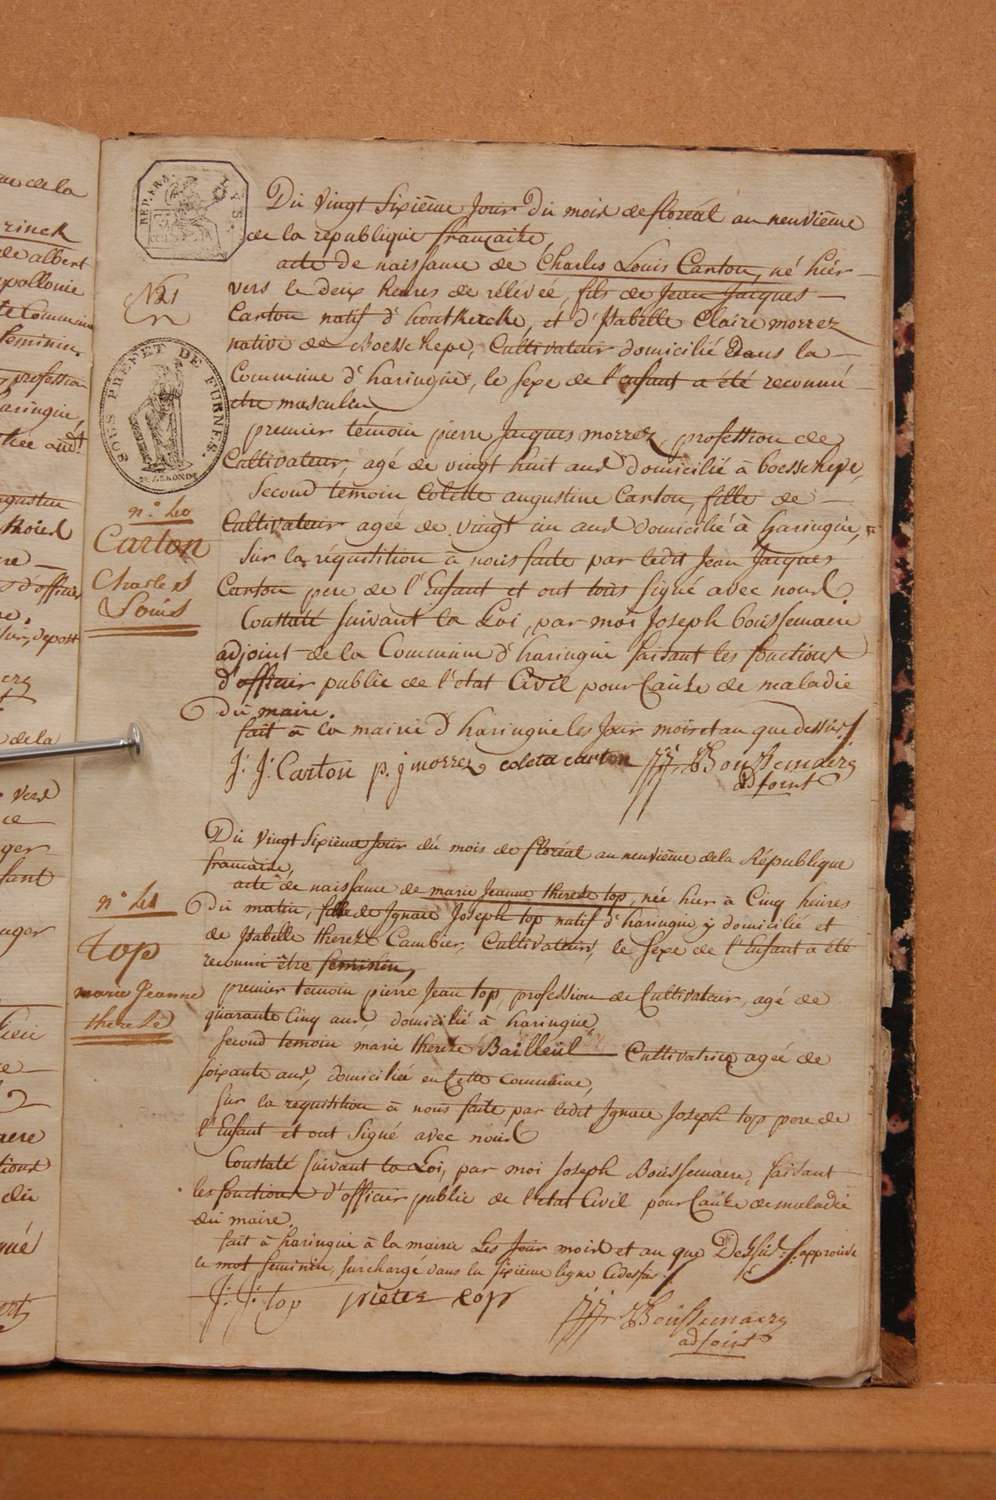 me de la
erinck
de albert
apollonie
te Commune
feminin,
profession
haringue,
augustin
d'officier
REP. FRA.
LYS.
SOUS PREFET DE FURNES.
Du vingt sixiême Jour Du mois de floréal au neuvième
de la république française,
acte de naissance de Charles Louis Carton, né hier
vers le deux heures de rélévée, fils de Jean Jacques
Carton natif d'houtkercke, et d'Isabelle Claire morrez
native de Boeschepe, Cultivateur domicilié Dans la
Commune d'haringue, le sexe de l'enfant a été reconnu
etre masculin,
premier témoin pierre Jacques morrez, profession de
Cultivateur, agé de vingt huit ans domicilié à boeschepe,
Second temoin Colette augustine Carton, fille de
Cultivateur agée de vingt un ans domicilié à haringue,
Sur la réquisition à nous faite par ledit Jean Jacques
Carton pere de l'Enfant et ont tous signé avec nous.
Constaté suivant la Loi, par moi Joseph boussemaere
adjoint de la Commune d'haringue faisant les fonctions
d'officier public de l'etat Civil pour Cause de maladie
du maire.
fait à la mairie d'haringue les Jour mois et an que dessus./
J: J: Carton p. j morrez coleta carton JJ Boussemaere
adjoint
n.° 40
Carton
Charles
Louis
Du vingt sixieme Jour du mois de floréal au neuvième de la République
francaise,
acte de naissance de marie Jeanne therese top, née hier à Cinq heures
du matin, fille de Ignace Joseph top natif d'haringue y domicilié et
de Isabelle therese Cambier, Cultivateurs, le sexe de l'Enfant a été
reconnu être feminin,
premier temoin pierre Jean top, profession de Cultivateur, agé de
quarante Cinq ans, domicilié à haringue,
second temoin marie therese Bailleul Cultivatrice agée de
soixante ans, domiciliée en Cette commune,
sur la requisition à nous faite par ledit Ignace Joseph top pere de
l'Enfant et ont Signé avec nous
Constaté suivant la Loi, par moi Joseph Boussemaere, faisant
les fonctions d'officier public de l'etat Civil pour Cause de maladie
du maire.
fait à haringue à la mairie Les Jour mois et an que Dessus./. approuvé
le mot feminin, surchargé dans la sixieme ligne Cidessus./
J: J: top pieter top JJ Boussemaere
adjoint
n.° 41
top
marie Jeanne
therese